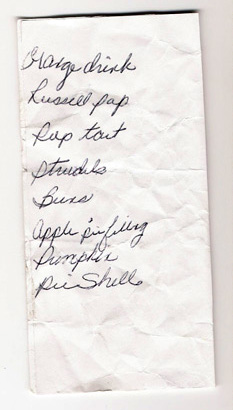 Orange drink
Russell pop
Pop tart
Strudels
Buns
Apple pie filling
Pumpkin
Pie Shells